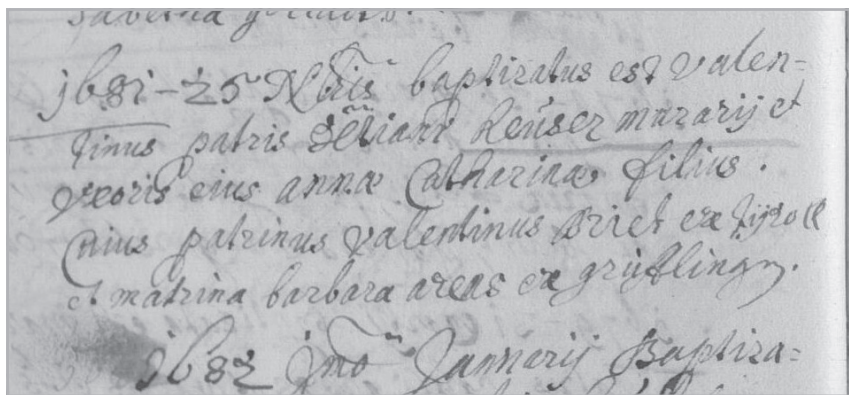 1681-25 Nbris baptizatus est Valen=
tinus patris Heüser murarij et
uxoris eius annæ Catharinæ filius.
Cuius patrinus valentinus Briet ex Tÿroll
et matrina barbara areas ex
1682 Jmo Januarij Baptiza=